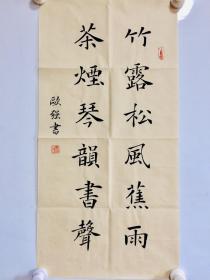 竹露松風蕉雨
茶煙琴韻書聲
歐強書